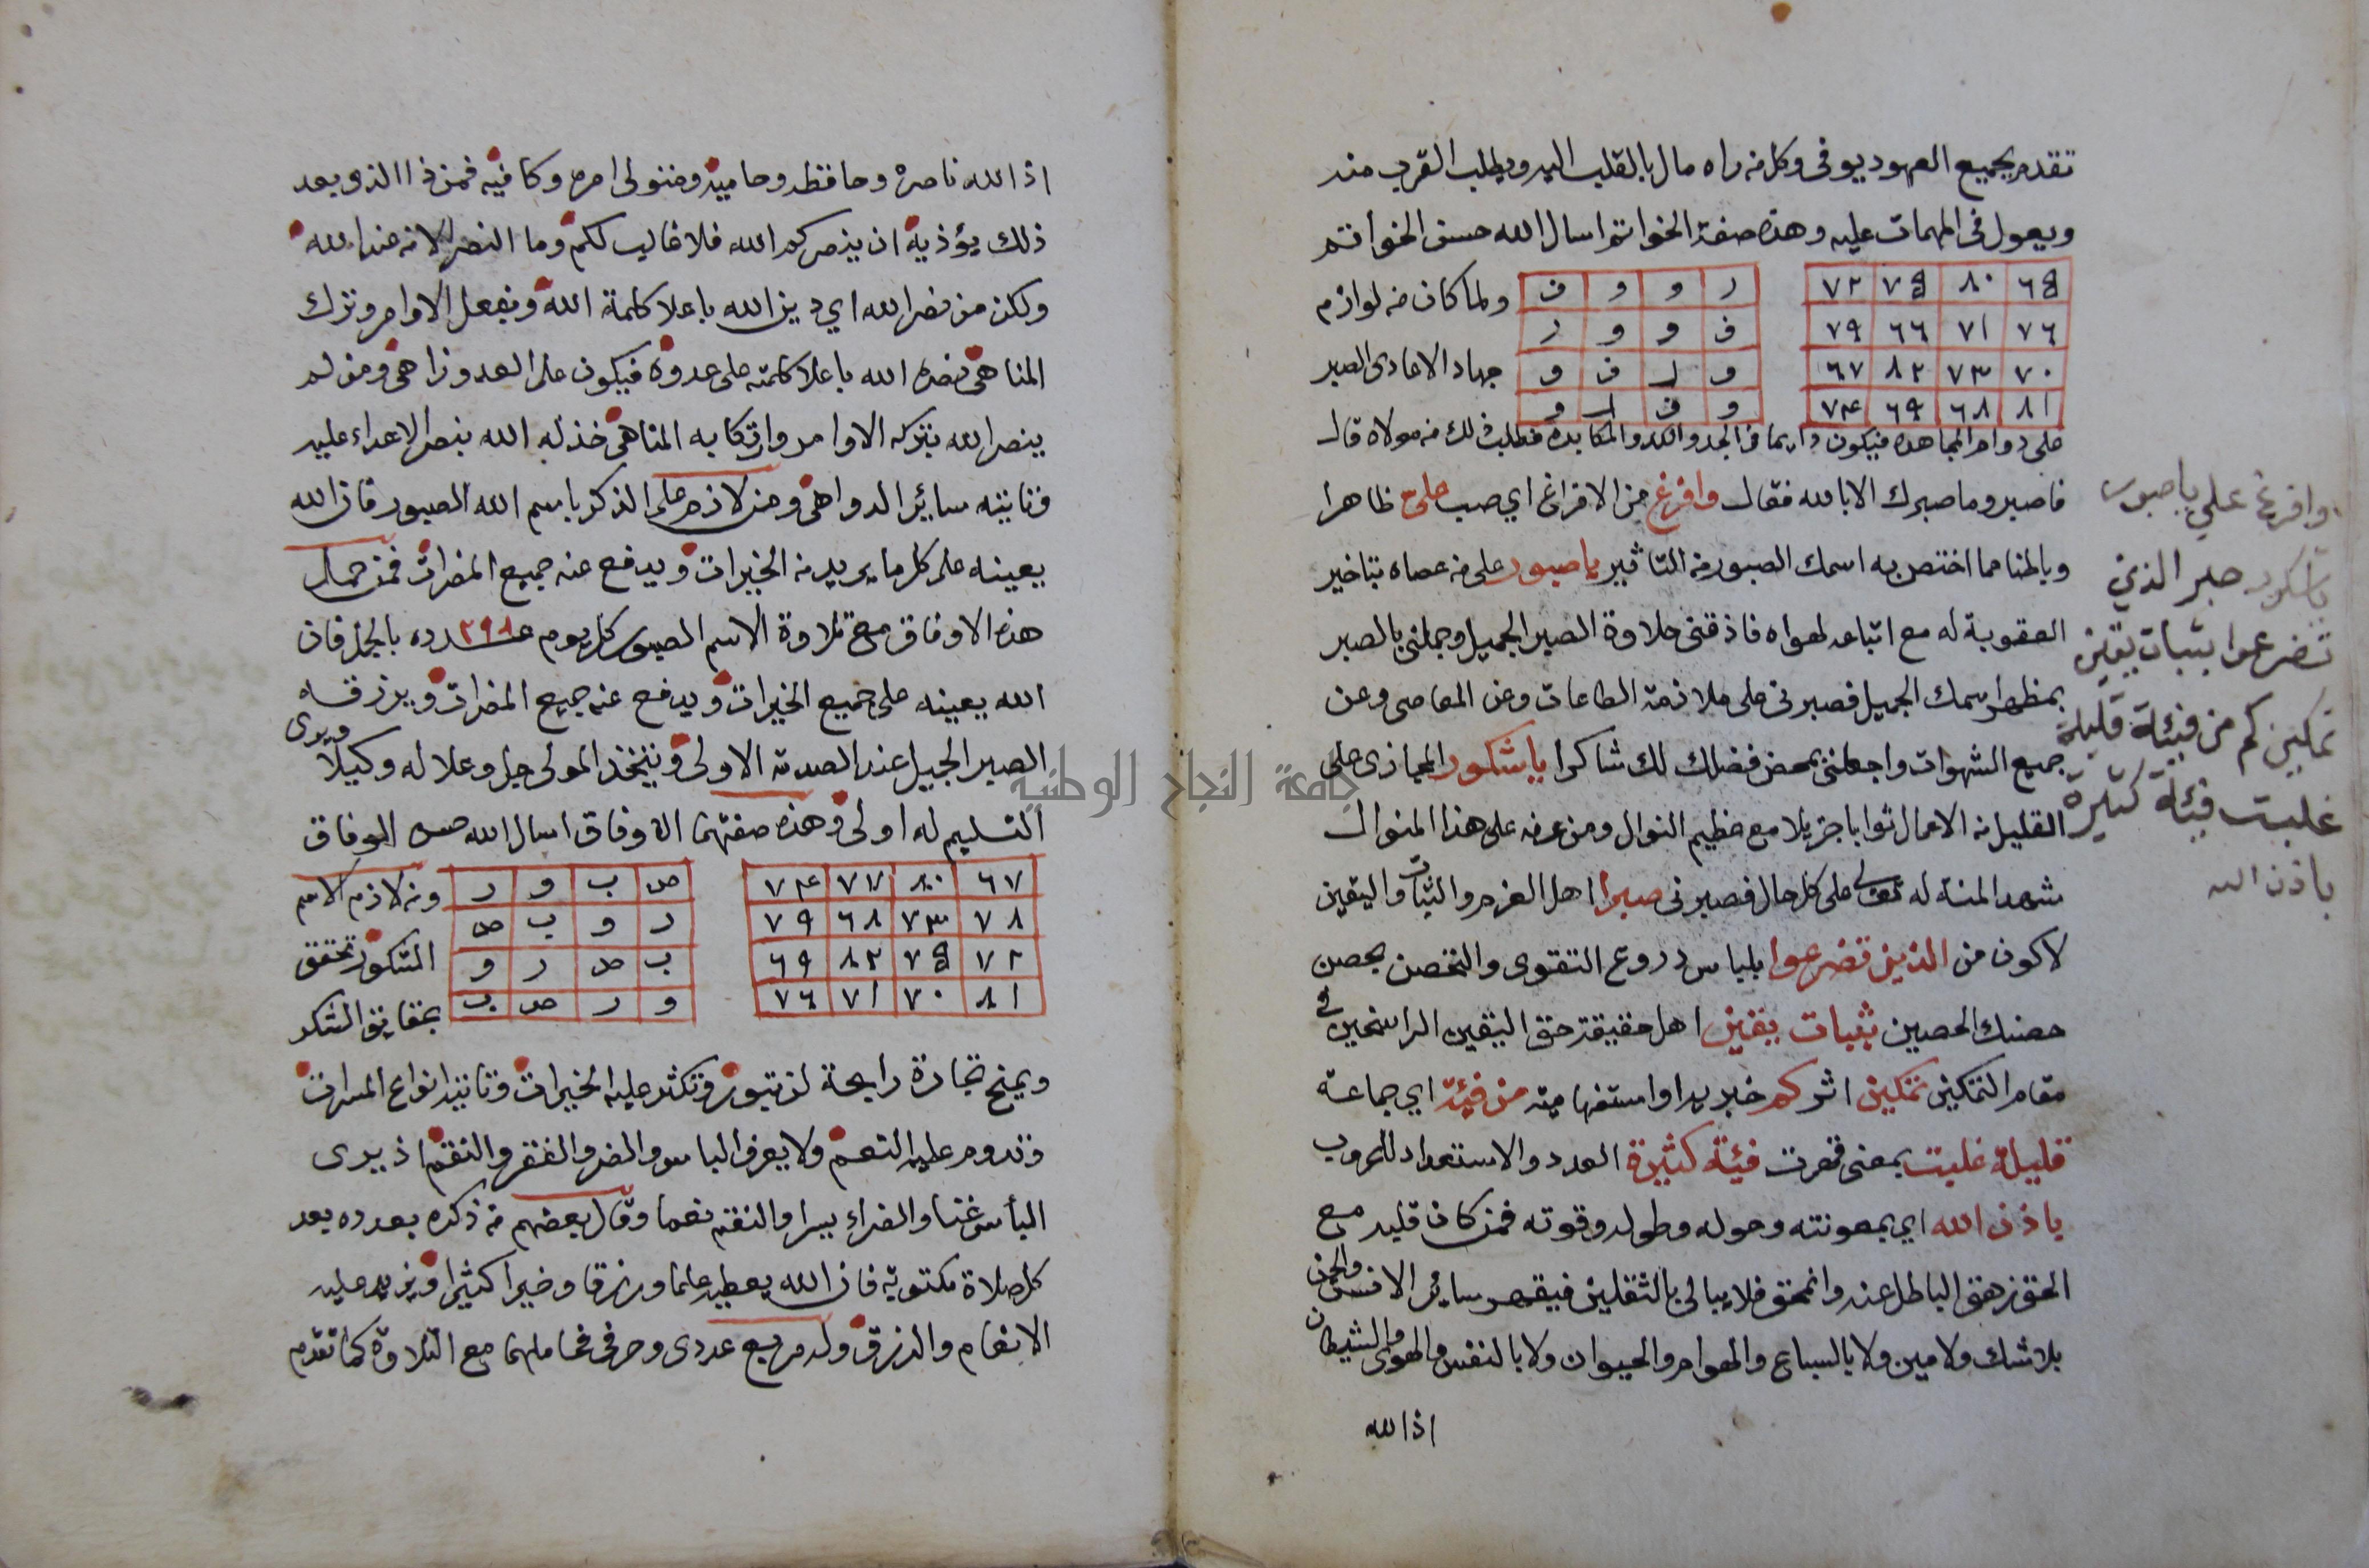 تقدم بجميع العهود يوفى وكل من راه مال بالقلب اليه ويطلب القرب منه
ويعول فى المهمات عليه وهذه صفة الخواتم اسال الله حسن الخواتم
٦٥ ٨٠ ٧٥ ٧٢
٧٦ ٧١ ٦٦ ٧٩
٧٠ ٧٣ ٨٢ ٦٧
٨١ ٦٨ ٦٩ ٧٤
ر و و ف
ف و و ر
و ر ف و
و ف ر و
ولما كان من لوازم
جهاد الاعادى الصبر
على دوام المجاهده فيكون دايما فى الجد والكد والمكابدة فطلب ذلك من مولاه قال
فاصبر وما صبرك الا بالله فقال وافرغ من الافراغ اي صب علي ظاهرا
وباطنا مما اختص به اسمك الصبور من التاثير يا صبور على من عصاه بتاخير
العقوبة له مع اتباعه لهواه فاذقنى حلاوة الصبر الجميل وجملنى بالصبر
بمظهر اسمك الجميل فصبرنى على ملازمة الطاعات وعن المعاصى وعن
جميع الشهوات واجعلنى بمحض فضلك لك شاكرا يا شكور المجازى على
القليل من الاعمال ثوابا جزيلا مع عظيم النوال ومن عرفه على هذا المنوال
شهد المنة له تعالى على كل حال فصبرنى صبر اهل العزم والثبات واليقين
لاكون من الذين تضرعوا بلباس دروع التقوى والتحصن بحصن
حصنك الحصين بثبات يقين اهل حقيقة حق اليقين الراسخين فى
مقام التمكين تمكين اثر كم خبريه او استفهامية من فيئة اي جماعة
قليلة غلبت بمعنى قهرت فيئة كثيرة العدد والاستعداد للحروب
باذن الله اي بمعونته وحوله وطوله وقوته فمن كان قليه مع
الحق زهق الباطل عنه وانمحق فلا يبالى بالثقلين فيقهر ساير الانس والجن
بلا شك ولا مين ولا بالسباع والهوام والحيوان ولا بالنفس والهوى والشيطان
اذا لله
وافرغ علي يا صبور
يا شكور صبر الذين
تضرعوا بثبات يقين
تمكين كم من فيئة قليلة
غلبت فيئة كثيرة
باذن الله
اذا الله ناصره وحافظه وحاميه ومتولى امره وكافيه فمن ذا الذي بعد
ذلك يؤذيه ان ينصركم الله فلا غالب لكم وما النصر الا من عند الله
ولكن من نصر الله اي دين الله باعلا كلمة الله وبفعل الاوامر وترك
المناهى نصره الله باعلا كلمته على عدوه فيكون على العدو زاهى ومن لم
ينصر الله بتركه الاوامر وارتكابه المناهى خذله الله بنصر الاعداء عليه
وتاتيه ساير الدواهى ومن لازم على الذكر باسم الله الصبور فان الله
يعينه على كل ما يريد من الخيرات ويدفع عنه جميع المضرات فمن حمل
هذه الاوفاق مع تلاوة الاسم الصبور كل يوم عدده ٢٩٨ بالجمل فان
الله يعينه على جميع الخيرات ويدفع عنه جميع المضرات ويرزقه
الصبر الجميل عند الصدمة الاولى ويتخذ المولى جل وعلا له وكيلا ويرى
التسليم له اولى وهذه صفتهما الاوفاق اسال الله حسن الوفاق
٦٧ ٨٠ ٧٧ ٧٤
٧٨ ٧٣ ٦٨ ٧٩
٧٢ ٧٥ ٨٢ ٦٩
٨١ ٧٠ ٧١ ٧٦
ص ب و ر
ر و ب ص
ب ص ر و
و ر ص ب
ومن لازم الاسم
الشكور تحقق
بمقايق الشكر
ويمنح تجارة رابحة لن تبور وتكثر عليه الخيرات وتاتيه انواع المسرات
وتدوم عليه النعم ولا يعرف الباس والضر والفقر والنقم اذ يرى
البأس غنا والضراء يسرا والنقم نعما وقال بعضهم من ذكره بعدده بعد
كل صلاة مكتوبة فان الله يعطيه علما ورزقا وخيرا كثيرا ويزيد عليه
الانعام والرزق وله مربع عددى وحرفى فحاملهما مع التلاوة كما تقدم
جامعة النجاح الوطنية